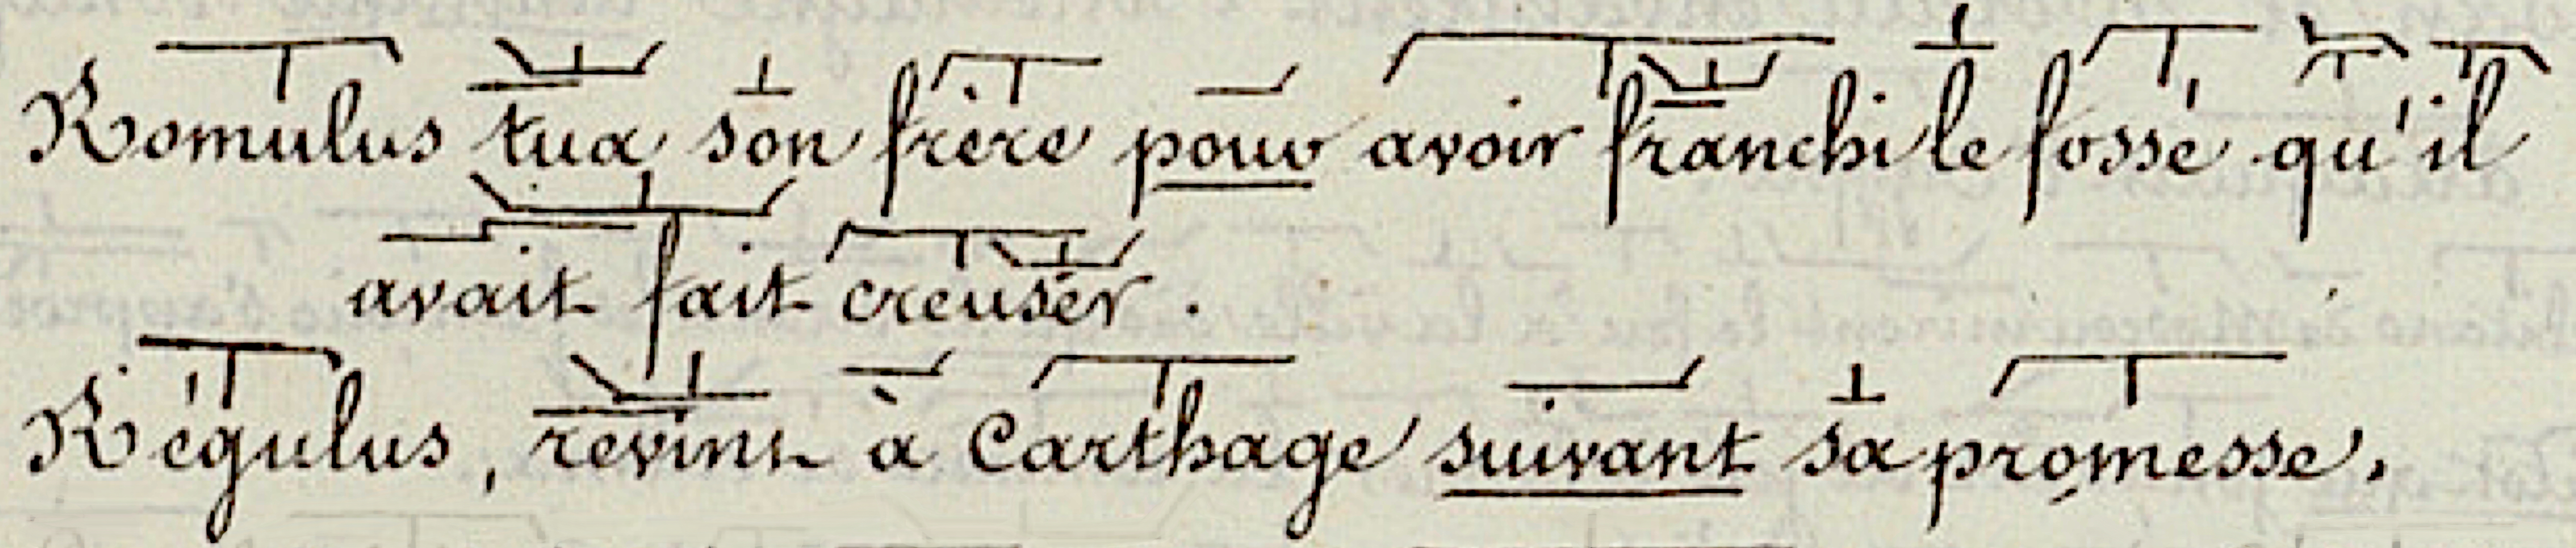 Romulus tua son frère pour avoir franchi le fossé qu'il
avait fait creuser.
Régulus, revint à Carthage suivant sa promesse.